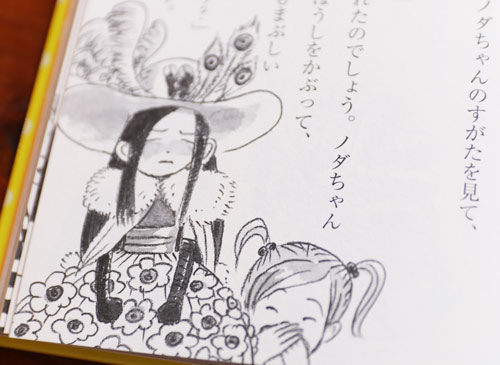 ノダちゃんのすがたを見て、
れたのでしょう。ノダちゃん
ぼうしをかぶって、
まぶしい